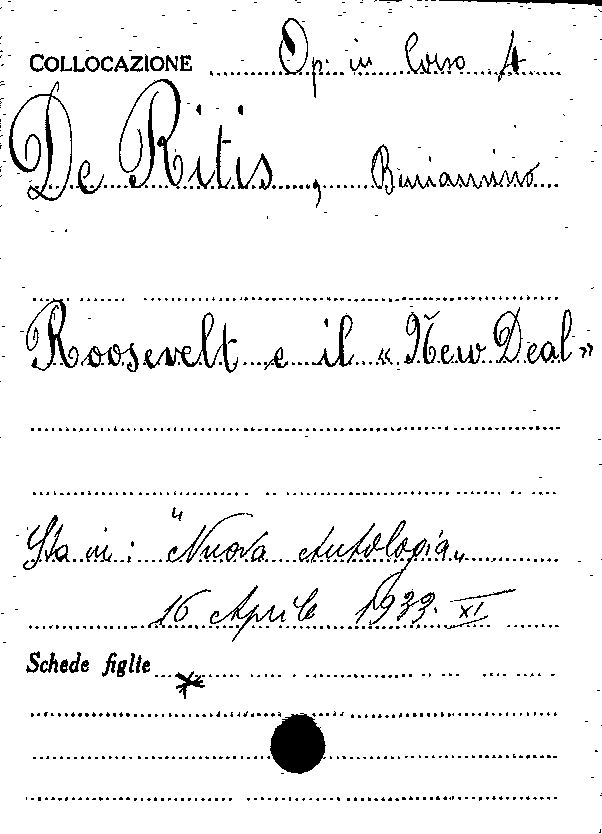 COLLOCAZIONE Op. in Corso A
De Ritis, Beniamino
Roosevelt e il « New Deal »
Sta in: "Nuova Antologia„
16 Aprile 1933. XI
Schede figlie